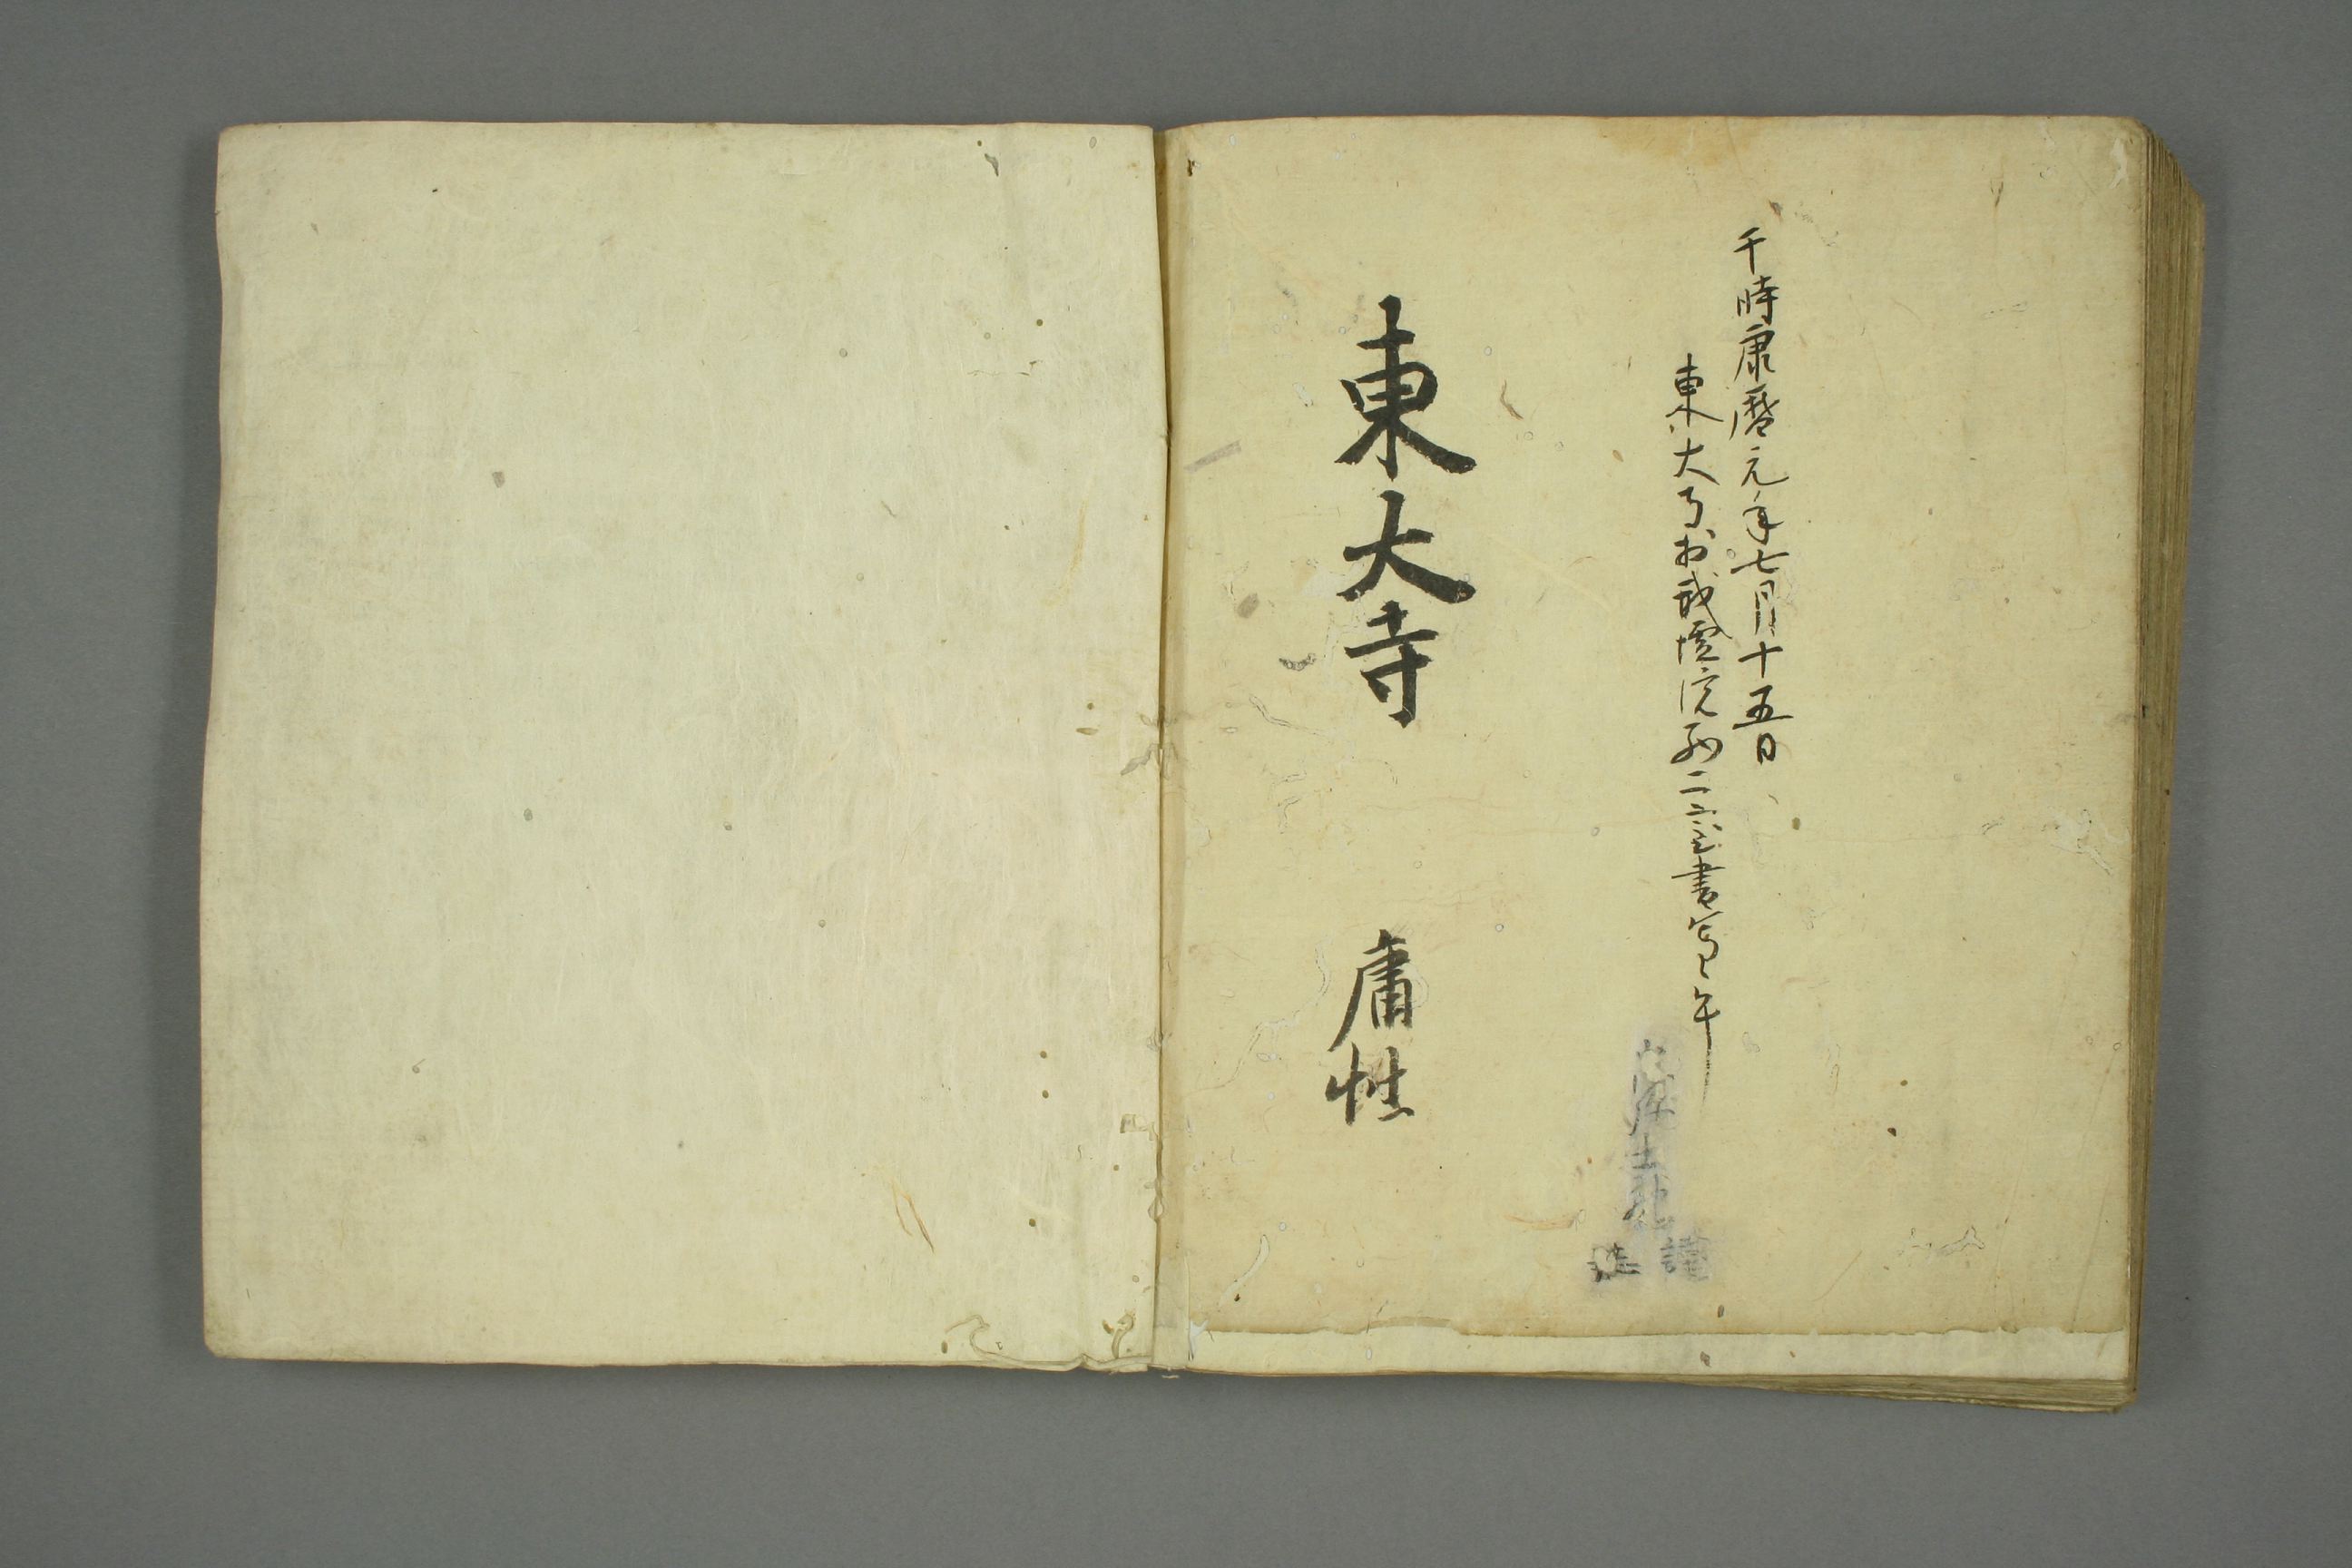 于時康暦元年七月十五日
東大寺於戒壇院西二室書写了
東大寺 庸性